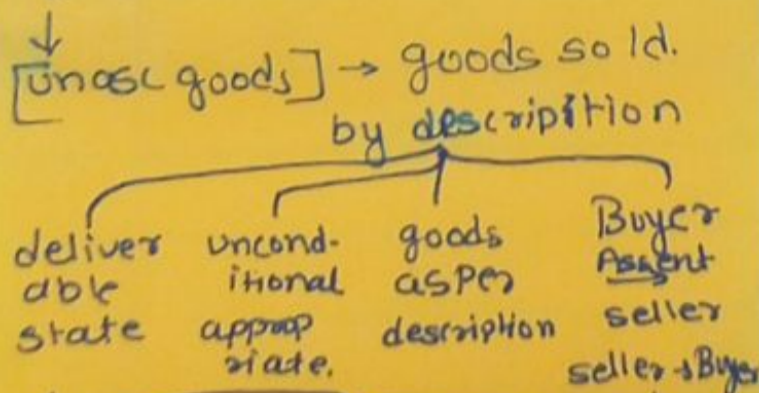 [unasc goods] → goods sold.
by description
deliver
able
state
uncond-
itional
approp
riate.
goods
as per
description
Buyer
Assent
seller
seller → Buyer